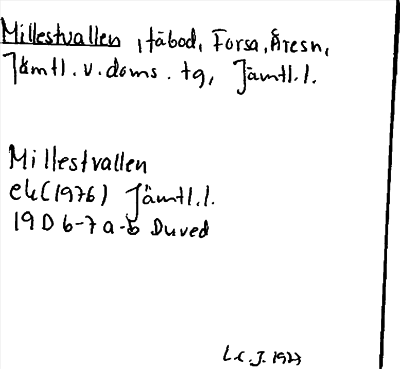 Millestvallen, fäbod, Forsa, Åresn,
Jämtl.v.doms.tg, Jämtl.l.
Millestvallen
ek (1976) Jämtl.l.
19D 6-7 a-b Duved